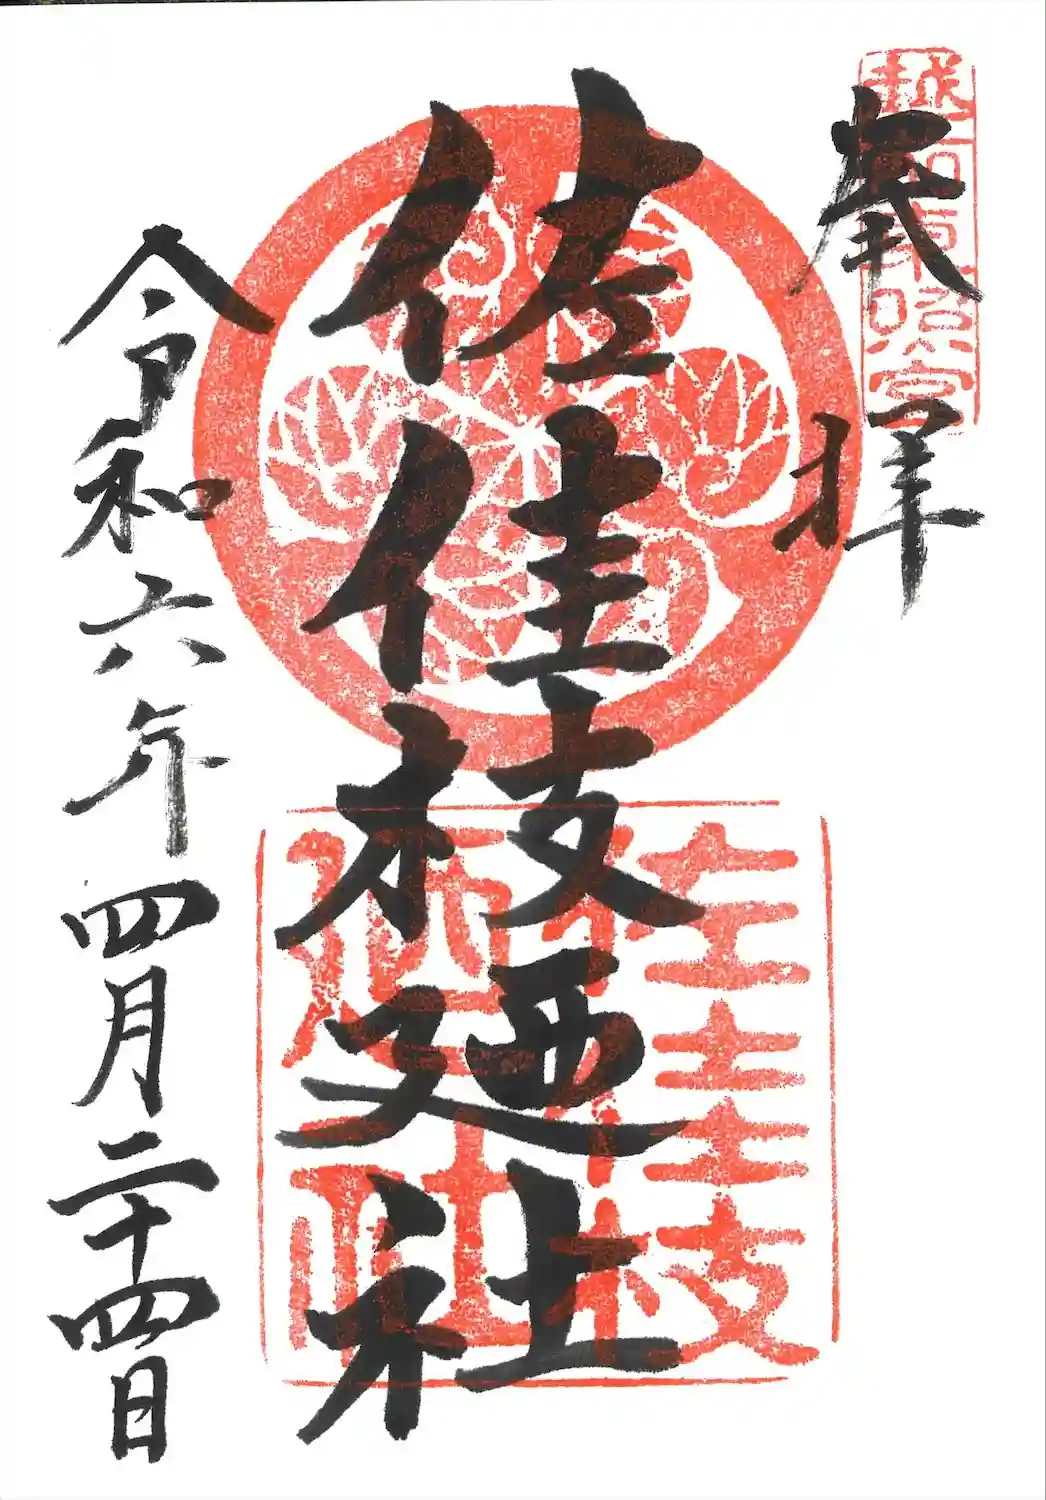 越前東照宮
奉拝
佐佳枝廼社
令和六年四月二十四日